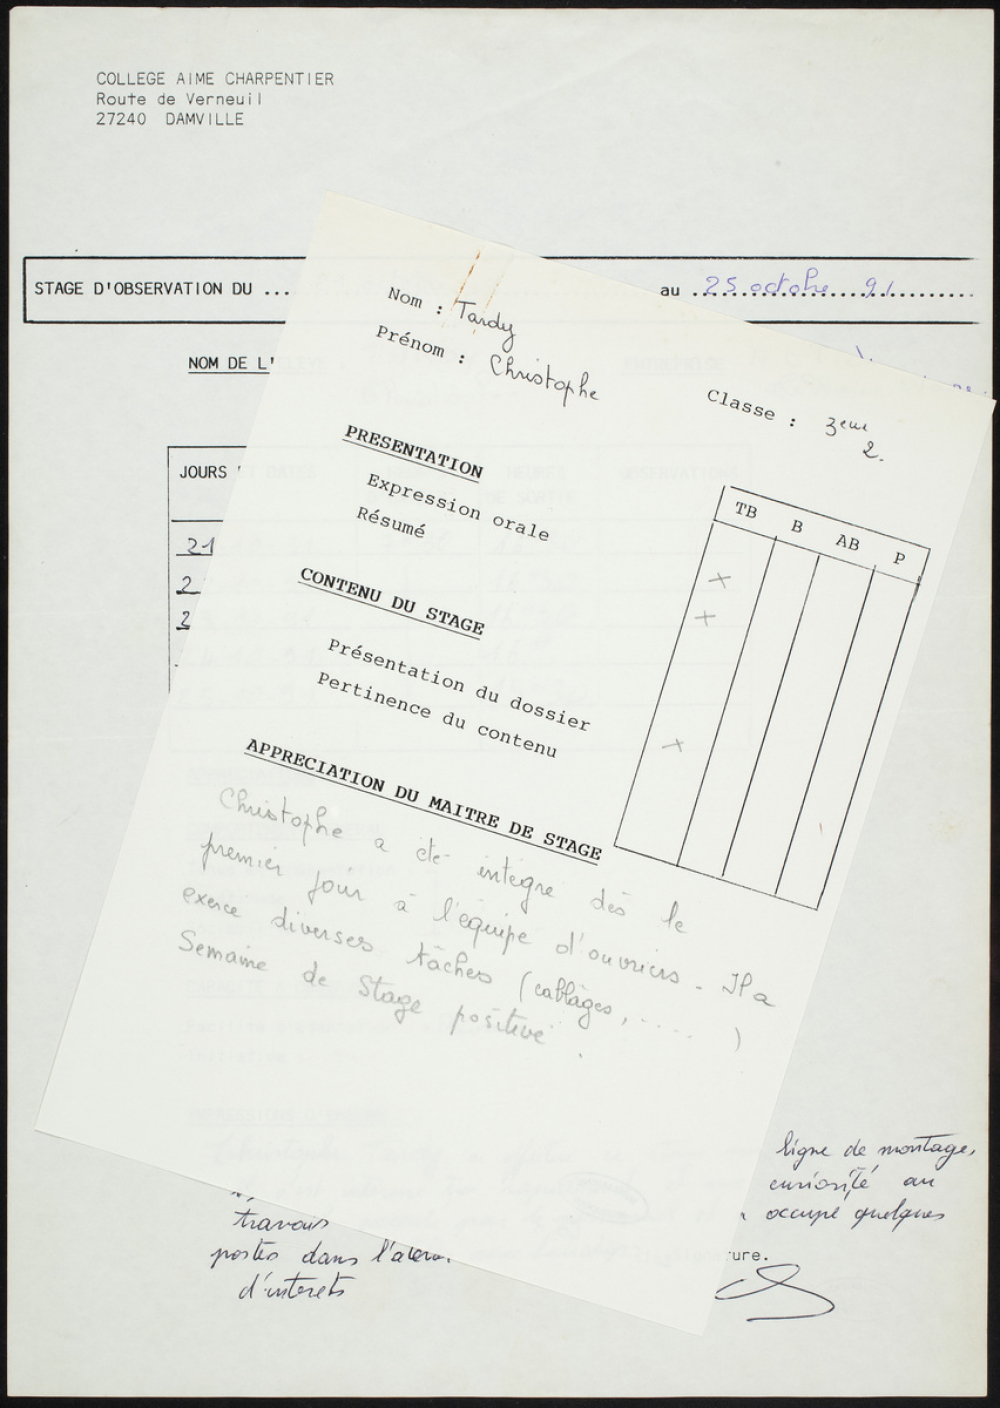 COLLEGE AIME CHARPENTIER
Route de Verneuil
27240 DAMVILLE
STAGE D'OBSERVATION DU ...
au ..25 octobre 91..........
NOM DE L'
JOURS
21
2
2
Nom : Tardy
Prénom : Christophe
Classe : 3eme
2.
PRESENTATION
Expression orale
Résumé
TB B AB P
CONTENU DU STAGE
Présentation du dossier
Pertinence du contenu
APPRECIATION DU MAITRE DE STAGE
Christophe a été intégré dès le
premier jour à l'équipe d'ouvriers - Il a
exercé diverses tâches (cablâges, ..... )
Semaine de Stage positive.
ligne de montage,
curiosité au
travais occupé quelques
postes dans l'
ture.
d'interets